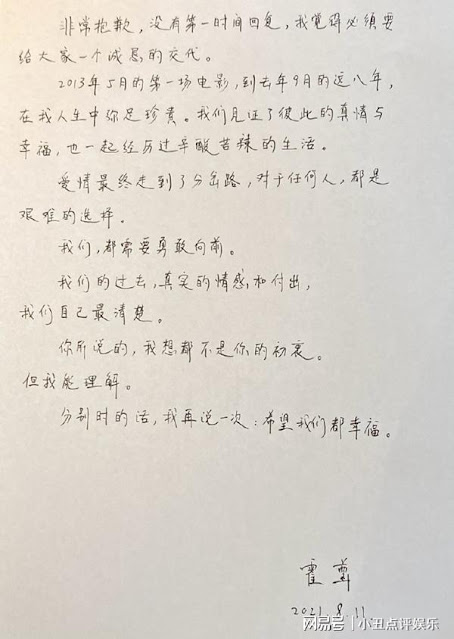 非常抱歉，没有第一时间回复，我觉得必须要
给大家一个诚恳的交代。
2013年5月的第一场电影，到去年9月的这八年，
在我人生中弥足珍贵。我们见证了彼此的真情与
幸福，也一起经历过辛酸苦辣的生活。
爱情最终走到了分岔路，对于任何人，都是
艰难的选择。
我们，都需要勇敢向前。
我们的过去，真实的情感和付出，
我们自己最清楚。
你所说的，我想都不是你的初衷。
但我能理解。
分别时的话，我再说一次：希望我们都幸福。
霍尊
2021.8.11
网易号 | 小丑点评娱乐